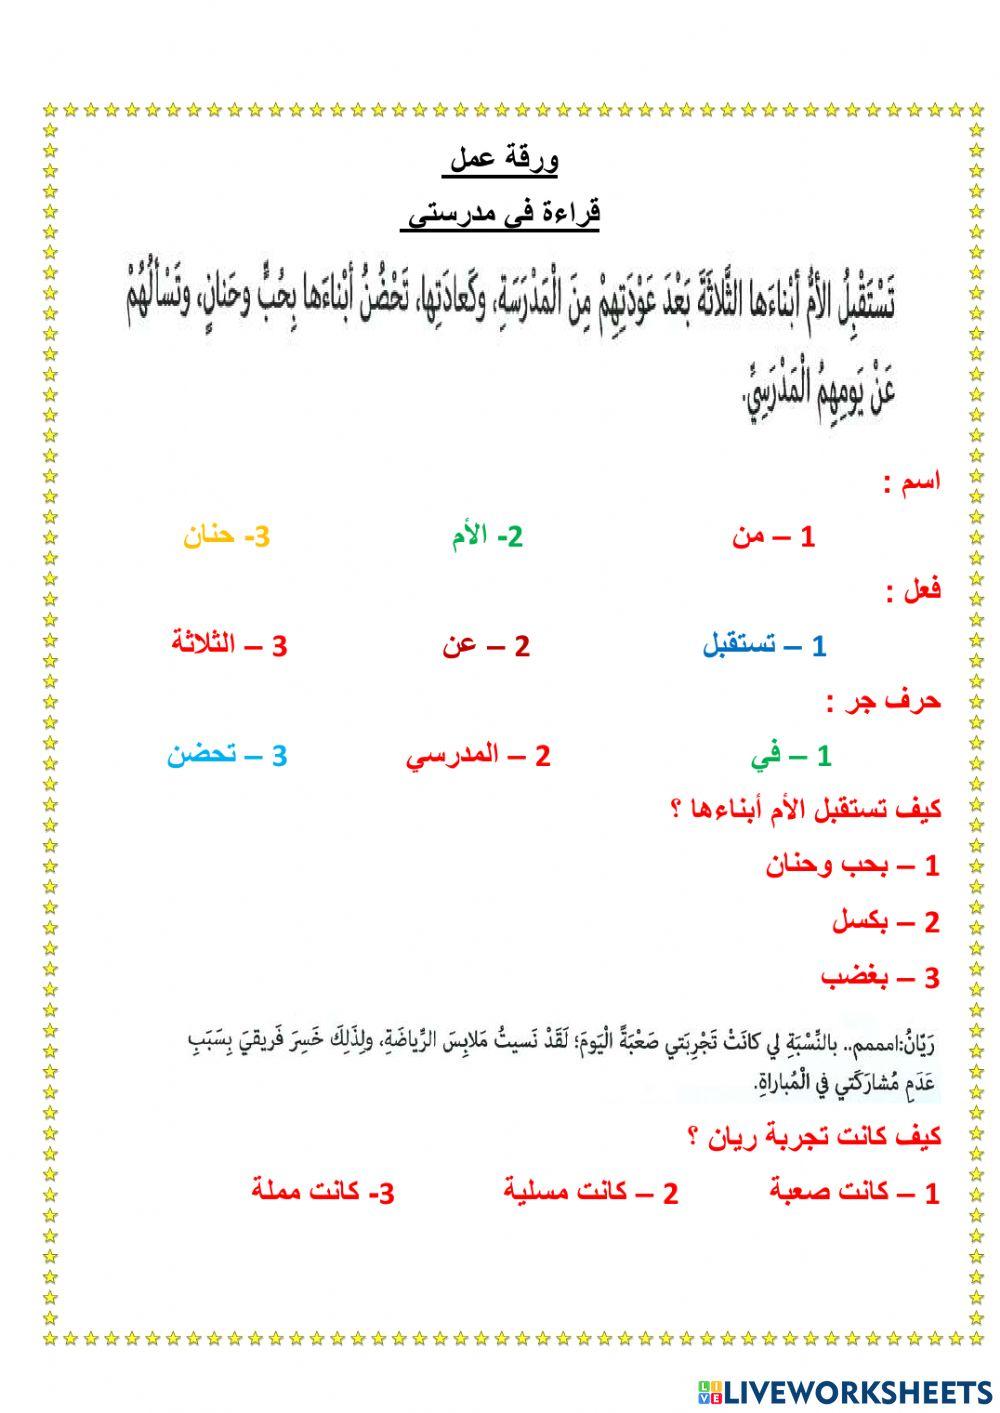 ورقة عمل
قراءة في مدرستي
تَسْتَقْبِلُ الأمُّ أَبْناءَها الثَّلاثَةَ بَعْدَ عَوْدَتِهِمْ مِنَ الْمَدْرَسَةِ، وكَعادَتِها، تَحْضُنُ أَبْناءَها بِحُبٍّ وحَنانٍ، وتَسْأَلُهُمْ
عَنْ يَومِهِمُ الْمَدْرَسِيِّ.
اسم :
1 – من 2- الأم 3- حنان
فعل :
1 – تستقبل 2 – عن 3 – الثلاثة
حرف جر :
1 – في 2 – المدرسي 3 – تحضن
كيف تستقبل الأم أبناءها ؟
1 – بحب وحنان
2 – بكسل
3 – بغضب
رَيّانُ:امممم.. بالنِّسْبَةِ لي كانَتْ تَجْرِبَتي صَعْبَةً الْيَومَ؛ لَقَدْ نَسيتُ مَلابِسَ الرِّياضَةِ، ولِذَلِكَ خَسِرَ فَريقيَ بِسَبَبِ
عَدَمِ مُشارَكَتي في الْمُباراةِ.
كيف كانت تجربة ريان ؟
1 – كانت صعبة 2 – كانت مسلية 3- كانت مملة
LIVE LIVEWORKSHEETS